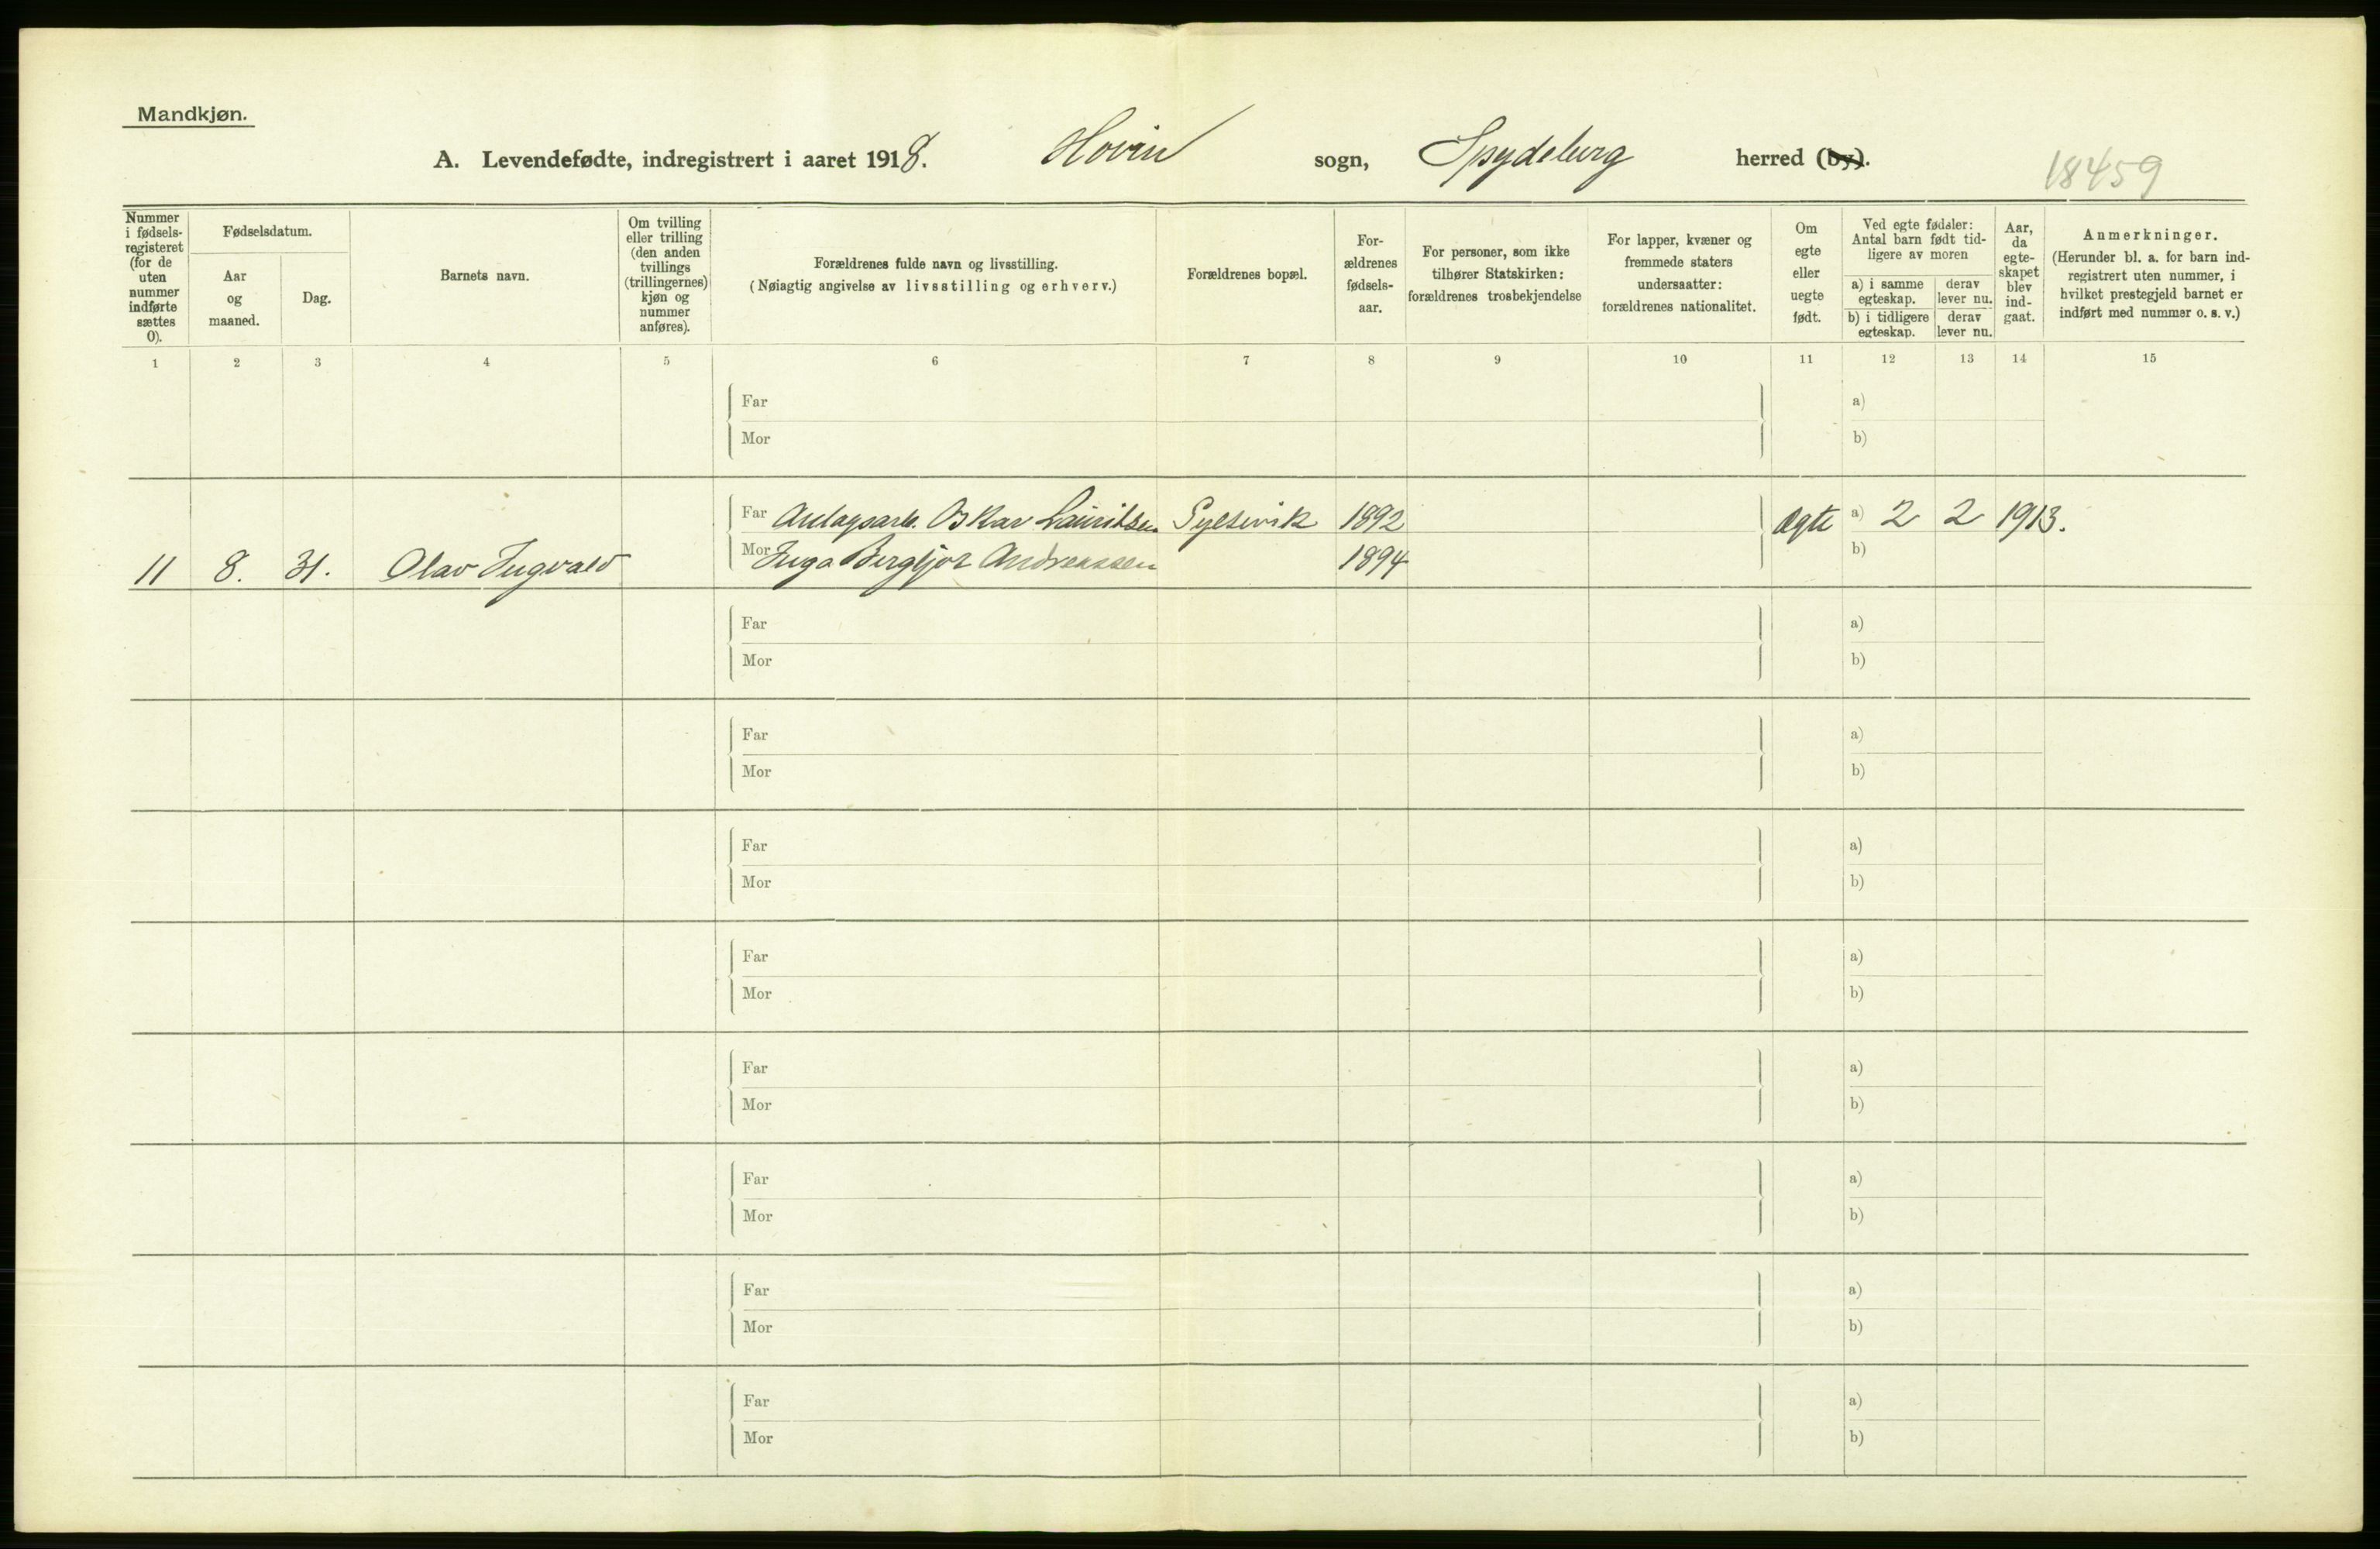 Mandkjøn.
A. Levendefødte, indregistrert i aaret 1918. Hovin sogn, Spydeberg herred (by).
18459
Nummer i fødsels-registeret (for de uten nummer indførte sættes 0).
Fødselsdatum.
Aar og maaned.
Dag.
Barnets navn.
Om tvilling eller trilling (den anden tvillings (trillingernes) kjøn og nummer anføres).
Forældrenes fulde navn og livsstilling.
(Nøiagtig angivelse av livsstilling og erhverv.)
Forældrenes bopæl.
For-ældrenes fødsels-aar.
For personer, som ikke tilhører Statskirken: forældrenes trosbekjendelse
For lapper, kvæner og fremmede staters undersaatter: forældrenes nationalitet.
Om egte eller uegte født.
Ved egte fødsler: Antal barn født tid-ligere av moren
a) i samme egteskap.
derav lever nu.
b) i tidligere egteskap.
derav lever nu.
Aar, da egte-skapet blev ind-gaat.
Anmerkninger.
(Herunder bl. a. for barn ind-registrert uten nummer, i hvilket prestegjeld barnet er indført med nummer o. s. v.)
1 2 3 4 5 6 7 8 9 10 11 12 13 14 15
Far a)
Mor b)
Far Anlagsarb. Oskar Lauritsen 1892 Ægte a) 2 2 1913.
11 8. 31. Olav Ingvald Mor Inga Bergljot Andreassen 1894 b)
Far a)
Mor b)
Far a)
Mor b)
Far a)
Mor b)
Far a)
Mor b)
Far a)
Mor b)
Far a)
Mor b)
Far a)
Mor b)
Far a)
Mor b)